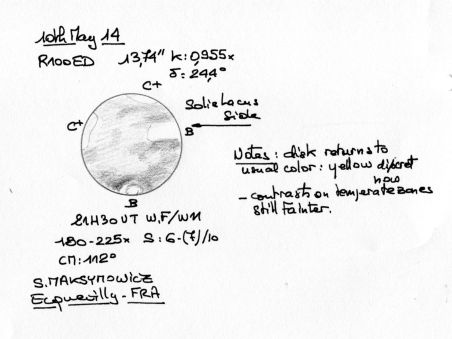 10th May 14
R100ED 13,74" k: 0,955x
δ: 24,4°
C+
C+
Solis Lacus
Side
B
B
Notes: disk returns to
usual color: yellow discret
now
- contrast on temperate zones
still fainter.
21H30 UT W,F/W11
180-225x S: 6-(7)/10
CM: 112°
S. MAKSYMOWICZ
Ecquevilly - FRA